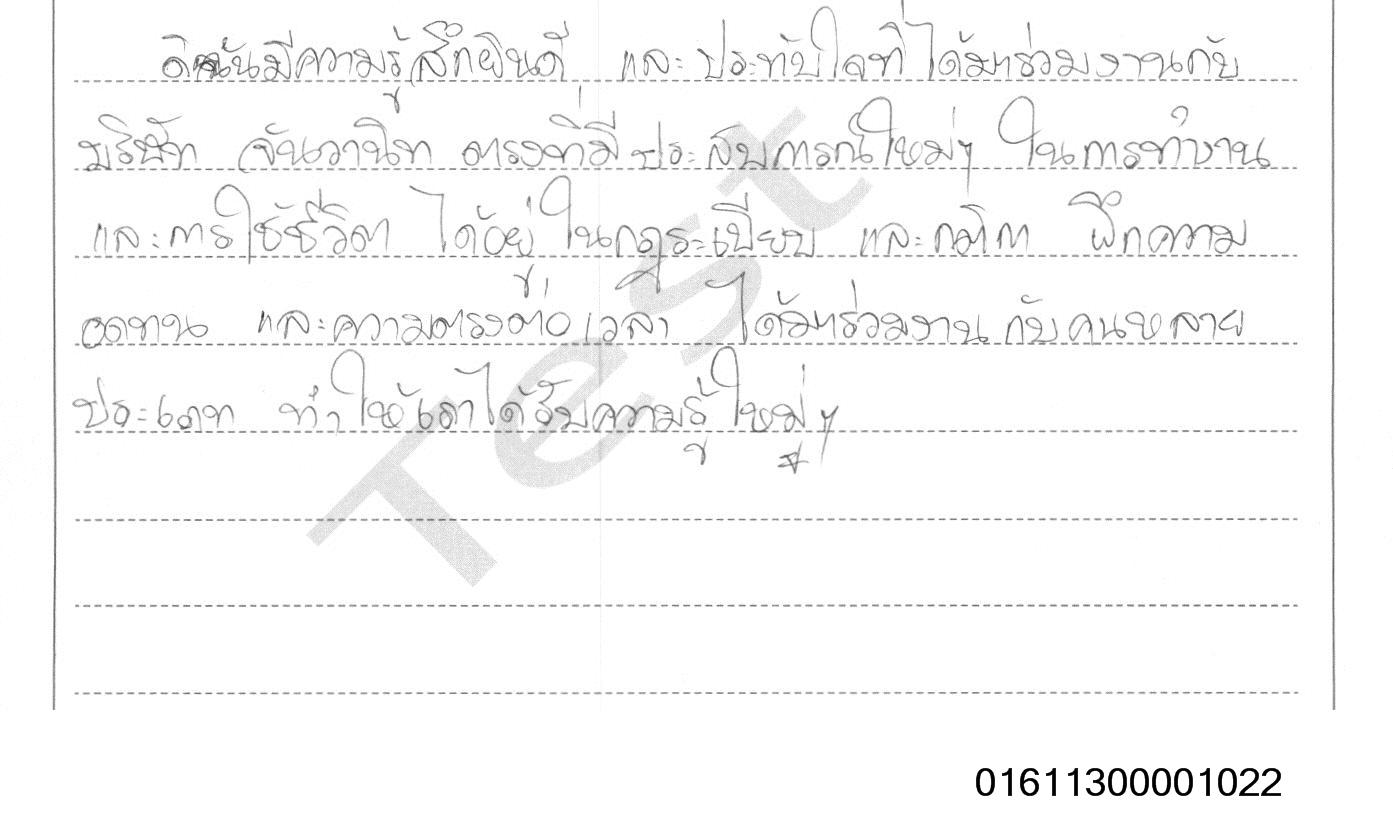 ดิฉันมีความรู้สึกยินดี และ ประทับใจที่ได้มาร่วมงานกับ
บริษัท จันวานิท ตรงที่มีประสบการณ์ใหม่ๆ ในการทำงาน
และการใช้ชีวิต ได้อยู่ในกฎระเบียบ และกติกา ฝึกความ
อดทน และความตรงต่อเวลา ได้มาร่วมงานกับคนหลาย
ประเภท ทำให้เราได้รับความรู้ใหม่ๆ
Test
01611300001022